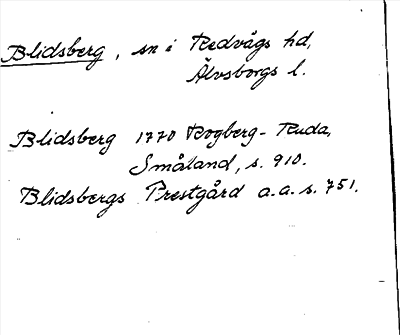 Blidsberg, sn i Redvägs hd,
Älvsborgs l.
Blidsberg 1770 Rogberg-Ruda,
Småland, s. 910.
Blidsbergs Prestgård a.a. s. 751.